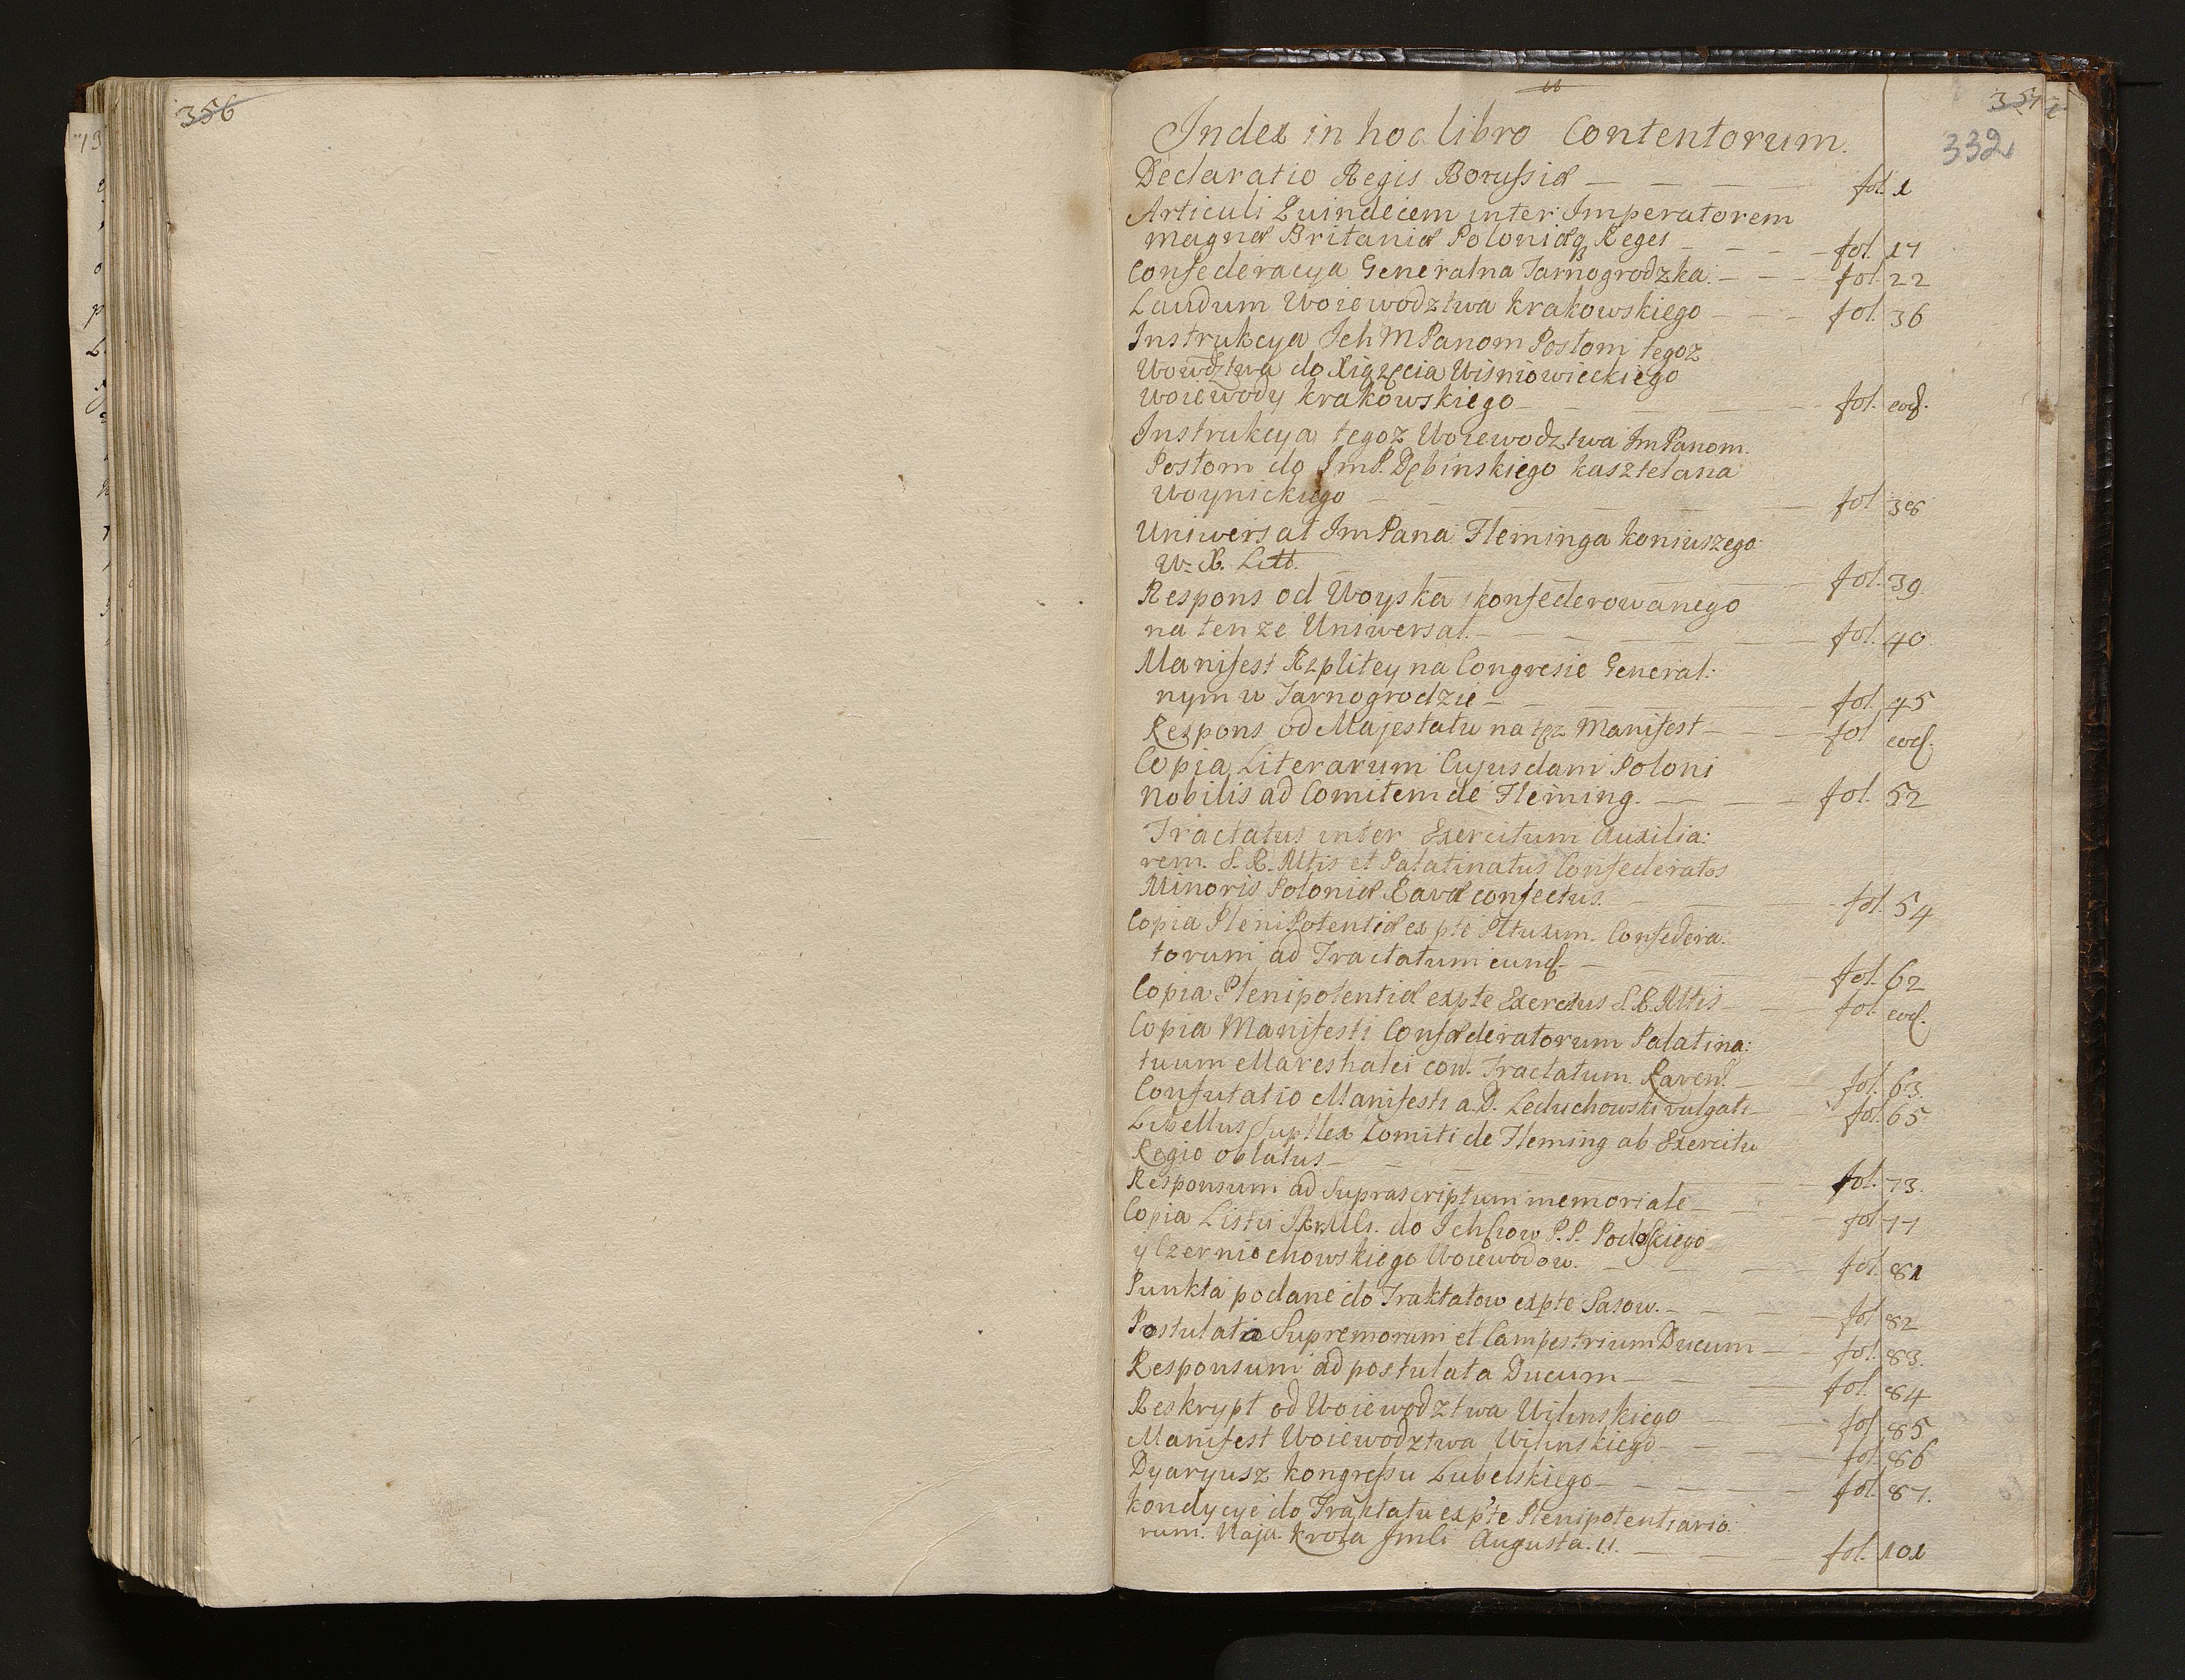 356
357
332
Index in hoc libro Contentorum.
Declaratio Regis Borussiæ — fol. 1
Articuli Quindecem inter Imperatorem
magnæ Britaniæ Poloniæq Reges — fol. 17
Confederacya Generalna Tarnogrodzka. — fol. 22
Laudum Woiewodztwa Krakowskiego — fol. 36
Instrukcya Ich M Panom Posłom tegoz
Wowdztwa do Xiązęcia Wisniowieckiego
Woiewody Krakowskiego — fol. eod.
Instrukcya tegoz Woiewodztwa Im Panom.
Posłom do ImP. Dębinskiego kasztelana
Woynickiego — fol 38
Uniwersał Im Pana Fleminga Koniuszego
W. X. Litt. — fol. 39.
Respons od Woyska skonfederowanego
na ten ze Uniwersał. — fol. 40
Manifest Rzplitey na Congresie General:
nym w Tarnogrodzie — fol. 45
Respons od Majestatu na tęz Manifest — fol eod.
Copia Literarum Cujusdam Poloni
Nobilis ad Comitem de Fleming. — fol. 52
Tractatus inter Exercitum Auxilia:
rem. S. R. Mtis et Palatinatus Confederatos
Minoris Poloniæ Ravæ confectus. — fol. 54
Copia PleniPotentiæ ex pte Pltuum. Confedera:
torum ad Tractatum eund. — fol. 62
Copia Plenipotentiæ expte Exercitus S. R. Mtis — fol. eod.
Copia Manifesti Confæderatorum Palatina:
tuum Mareshalei con. Tractatum. Raven. — fol. 63.
Confutatio Manifesti a. D. Leduchowski vulgati — fol. 65
Libellus Supplex Comiti de Fleming ab Exercitu
Regio oblatus — fol. 73.
Responsum ad Suprascriptum memoriale — fol 77
Copia Listu do Ich P.P. Podolskiego
y Czerniechowskiego Woiewodow. — fol. 81
Punkta podane do Traktatow expte Sasow. — fol 82
Postulatio Supremorum et Campestrium Ducum — fol. 83.
Responsum ad postulata Ducum — fol. 84
Reskrypt od Woiewodztwa Wilnskiego — fol 85
Manifest Woiewodztwa Wilnskiego — fol. 86
Dyaryusz kongressu Lubelskiego — fol. 87.
Kondycye do Traktatu exp'te Plenipotentiario:
rum. Naja. Krola Imsci Augusta. II. — fol. 101